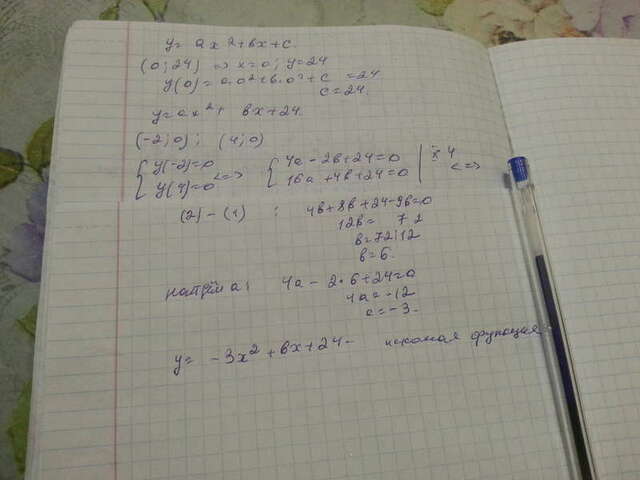 y= ax²+bx+c.
(0;24) => x=0; y=24
y(0)=a·0²+b·0+c =24
c=24.
y=ax²+ bx+24.
(-2;0); (4;0)
{ y(-2)=0 y(4)=0 <=> { 4a-2b+24=0 16a+4b+24=0 | x4 <=>
(2)-(1) : 4b+8b+24-96=0
12b= 72
b=72:12
b=6.
найдём a: 4a-2·6+24=0
4a=-12
a=-3.
y= -3x²+bx+24- искомая функция.